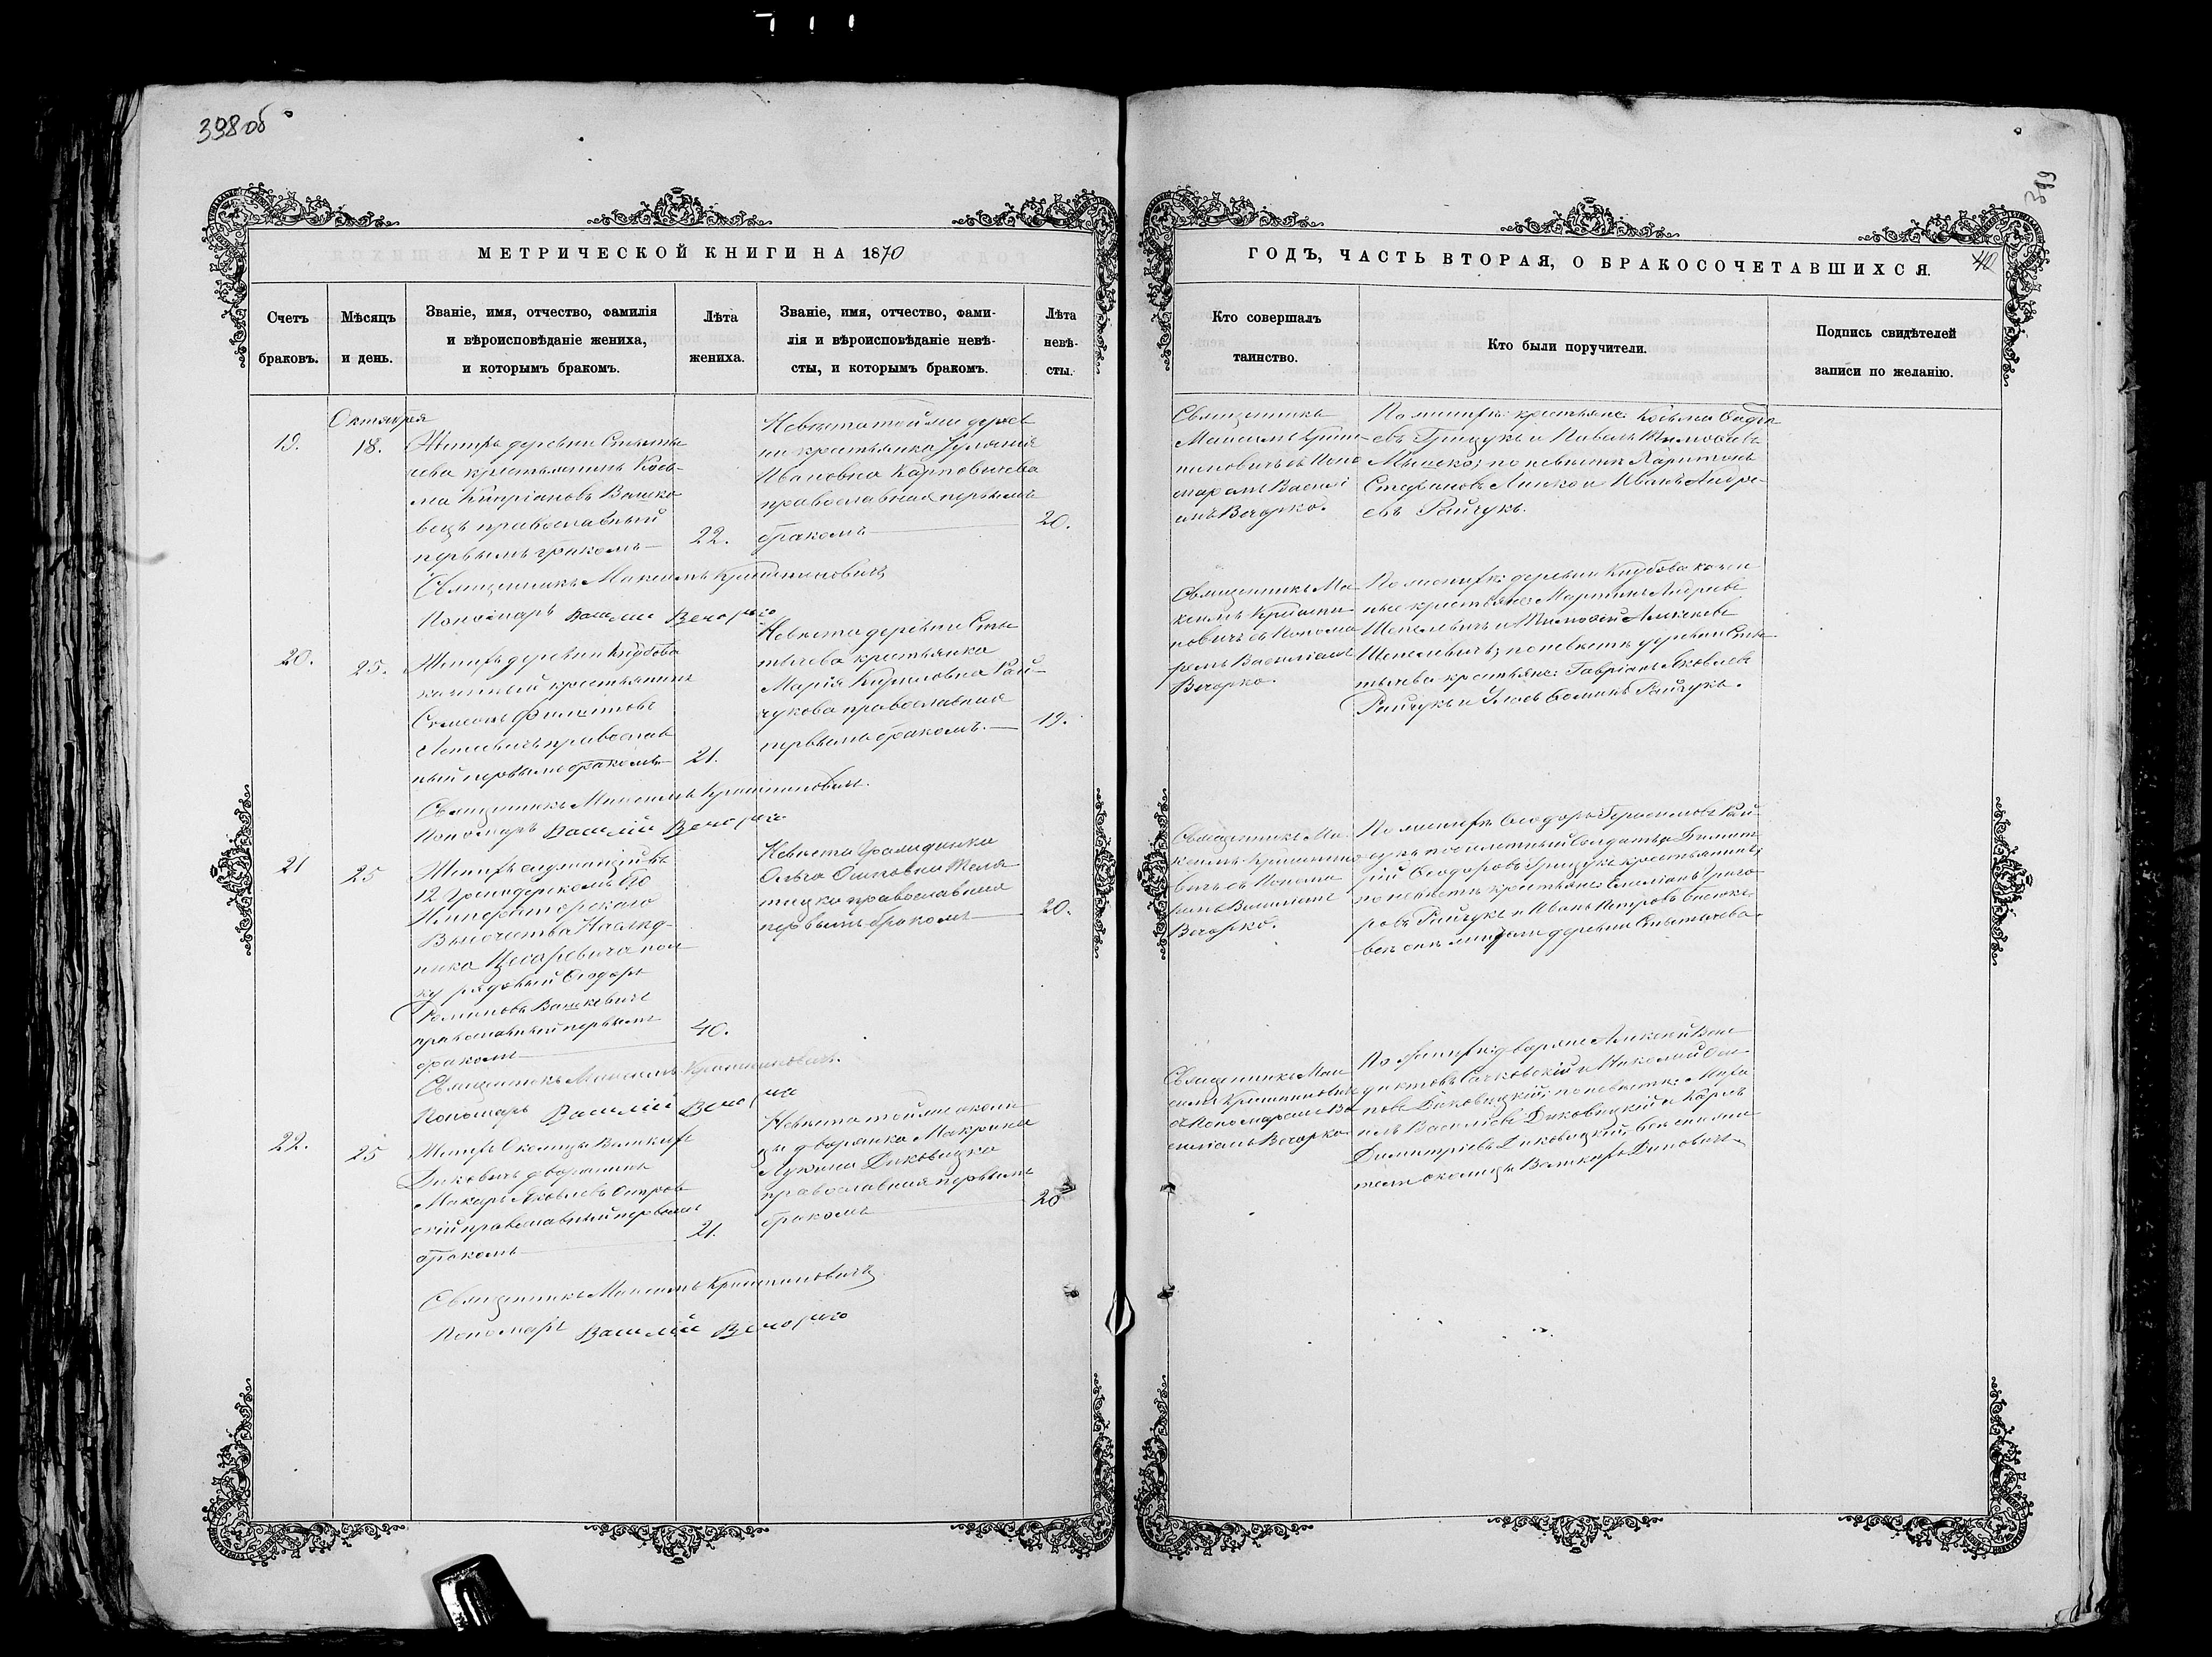 398 об
399
МЕТРИЧЕСКОЙ КНИГИ НА 1870
ГОДЪ, ЧАСТЬ ВТОРАЯ, О БРАКОСОЧЕТАВШИХСЯ.
40
Счетъ
браковъ.
Мѣсяцъ
и день.
Званіе, имя, отчество, фамилія
и вѣроисповѣданіе жениха,
и которымъ бракомъ.
Лѣта
жениха.
Званіе, имя, отчество, фами-
лія и вѣроисповѣданіе невѣ-
сты, и которымъ бракомъ.
Лѣта
невѣ-
сты.
Кто совершалъ
таинство.
Кто были поручители.
Подпись свидѣтелей
записи по желанію.
Октября
19.
18.
Женихъ деревни Стыты
чева крестьянинъ Кось-
ма Кипріановъ Вашко
вецъ православный
первымъ бракомъ
22.
Невѣста той же дерев
ни крестьянка Іуліанія
Ивановна Карповичева
православная первымъ
бракомъ
20.
Священникъ
Максимъ Криш-
тиновичъ съ Поно
маремъ Василі
емъ Вечорко.
По женихѣ: крестьяне: Косьма Андре
евъ Грицукъ и Павелъ Тимоѳеевъ
; по невѣстѣ Харитонъ
Стефановъ и Иванъ Андре-
евъ Райчукъ.
Священникъ Максимъ Криштиновичъ
Пономарь Василій Вечорко
20.
25.
Женихъ деревни
крестьянинъ
Симеонъ Филиповъ
православ
ный первымъ бракомъ
21.
Невѣста деревни Сты
тычева крестьянка
Марія Кириловна Рай-
чукова православная
первымъ бракомъ.
19.
Священникъ Ма
ксимъ Кришти-
новичъ съ Понома
ремъ Василіемъ
Вечорко.
По женихѣ: деревни
крестьяне: Мартинъ Андреевъ
Шепелевичъ и Тимоѳей Алексѣевъ
Шепелевичъ; по невѣстѣ деревни Сты-
тычева крестьяне: Гавріилъ Яковлевъ
Райчукъ и Ѳоминъ Райчукъ.
Священникъ Максимъ Криштиновичъ.
Пономарь Василій Вечорко
21
25
Женихъ служащій въ
12 Гренадерскомъ Его
Императорскаго
Высочества Наслѣд-
ника Цесаревича пол
ку рядовый Ѳеодоръ
Романовъ Вашкевичъ
православный первымъ
бракомъ
40.
Невѣста Гражданка
Ольга Осиповна
православная
первымъ бракомъ
20.
Священникъ Ма-
ксимъ Криштино
вичъ съ Понома
ремъ Василіемъ
Вечорко.
По женихѣ Ѳеодоръ Герасимовъ Рай-
чукъ солдатъ и Димит-
рій Ѳеодоровъ Грицукъ крестьянинъ;
по невѣстѣ крестьяне: Емеліанъ Григо-
ровъ Райчукъ и Иванъ Петровъ
всѣ они жители деревни Стытычева.
Священникъ Максимъ Криштиновичъ.
Пономарь Василій Вечорко
22.
25
Женихъ Околицы
Диковичъ дворянинъ
Макаръ Яковлевъ Остров
скій православный первымъ
бракомъ
21.
Невѣста той же околи
цы дворянка Макрина
Лукина Диковицка
православная первымъ
бракомъ
20
Священникъ Мак
симъ Криштиновичъ
съ Пономаремъ Ва
силіемъ Вечорко
По женихѣ: дворяне Алексѣй Вене
диктовъ Сачковскій и Николай Оси-
повъ Диковицкій; по невѣстѣ: Миха
илъ Васильевъ Диковицкій и Карлъ
Димитріевъ Диковицкій, всѣ они жи
тели околицы Диковичъ.
Священникъ Максимъ Криштиновичъ
Пономарь Василій Вечорко